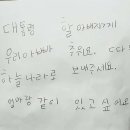 대통령 할아버지께
우리아빠가 추워요. 따뜻한
하늘나라로 보내주세요.
엄마랑 같이 있고 싶어요